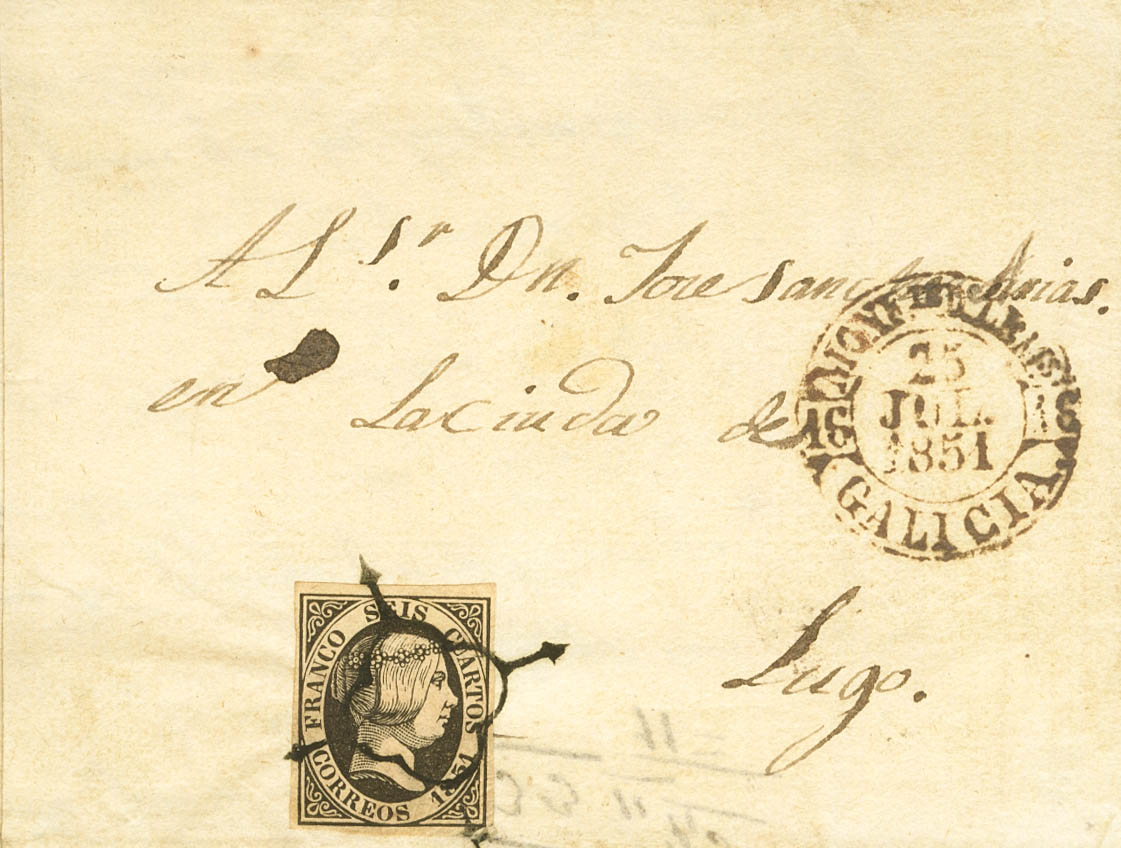 A L S.r Dn. Jose Sanchez Arias.
en La Ciuda de
25
JUL.
1851
16
GALICIA
Lugo.
FRANCO SEIS CUARTOS
CORREOS 1851
11